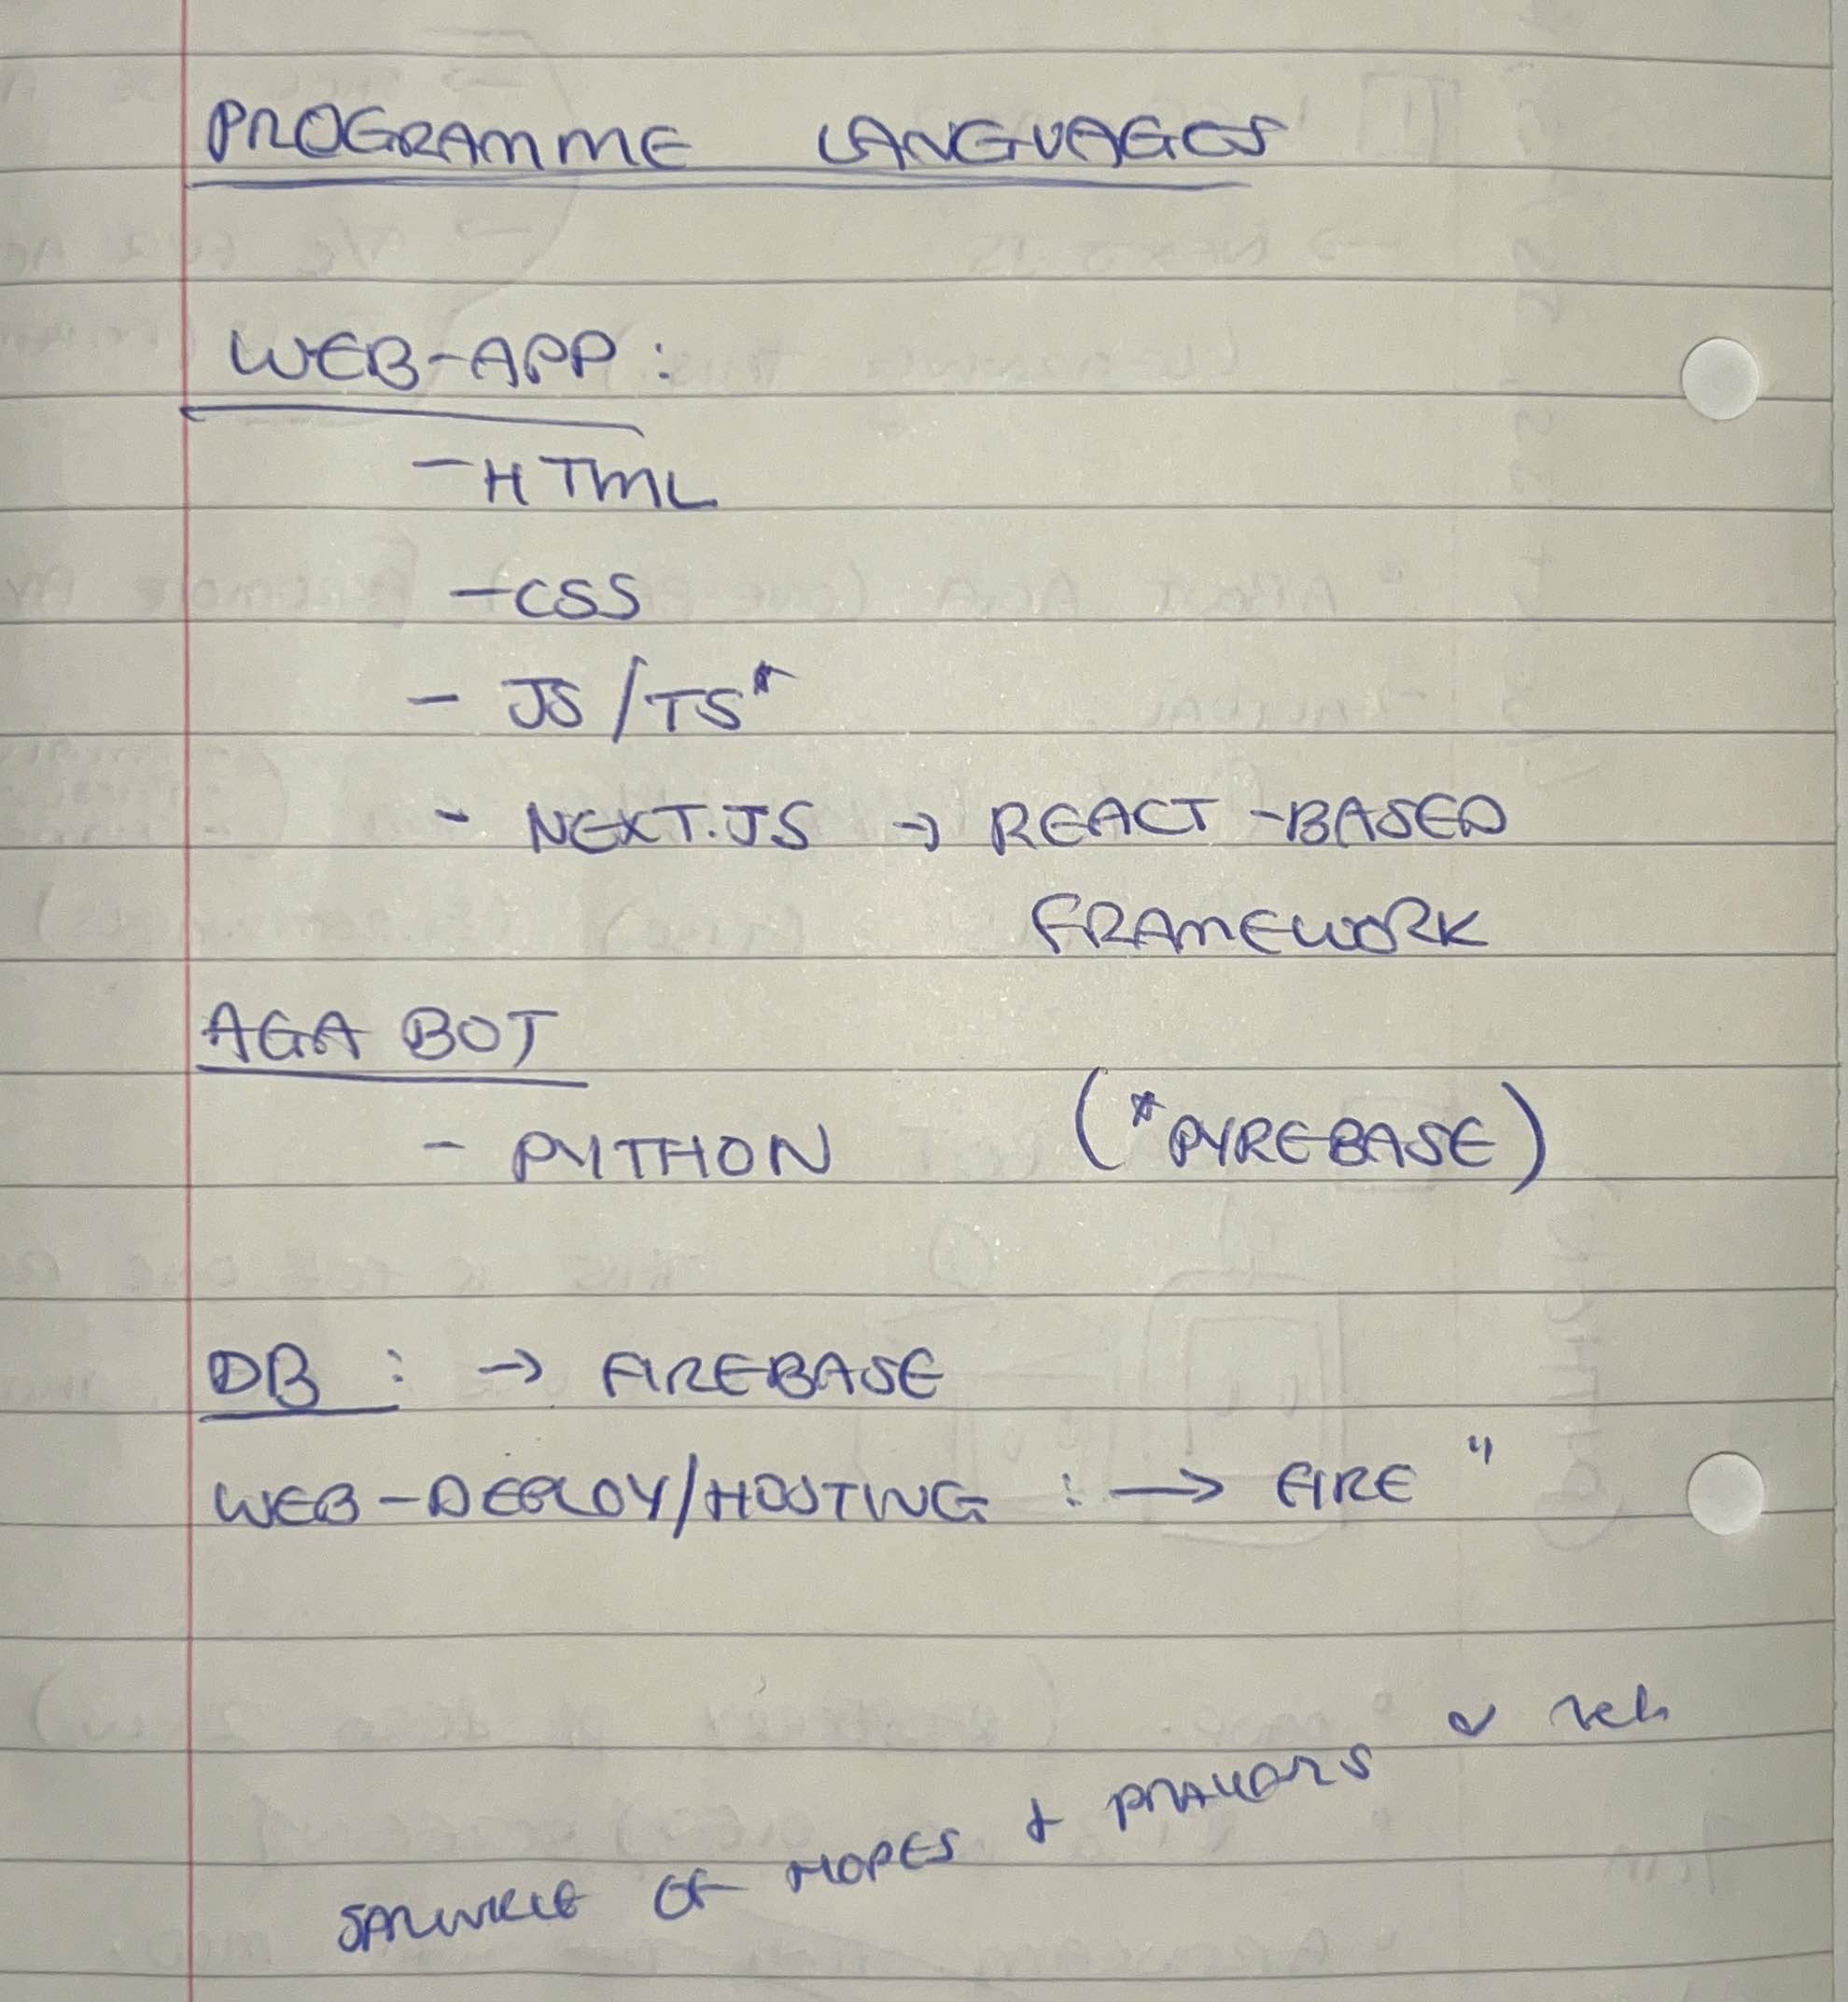 PROGRAMME LANGUAGES
WEB-APP:
- HTML
- CSS
- JS/TS*
- NEXT.JS → REACT-BASED
FRAMEWORK
AGA BOT
- PYTHON (*PYREBASE)
DB: → FIREBASE
WEB-DEPLOY/HOSTING: → FIRE "
SPRINKLE OF HOPES + PRAYERS